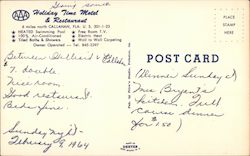 Going South
AAA
Holiday Time Motel
& Restaurant
6 miles north CALLAHAN, FLA. U.S. 301-1-23
HEATED Swimming Pool
Free Room T.V.
100% Air-Conditioned
Electric Heat
Tiled Baths & Showers
Wall to Wall Carpeting
Owner Operated — Tel. 845-2397
POST CARD
Between Hilliard &
7. double
Nice room
Good restaurant
Sunday nyt -
February 9, 1964
(Dinner Sunday
Mrs Bryant's
Kitchen. Full
course dinner
for 1.50)
DEXTER